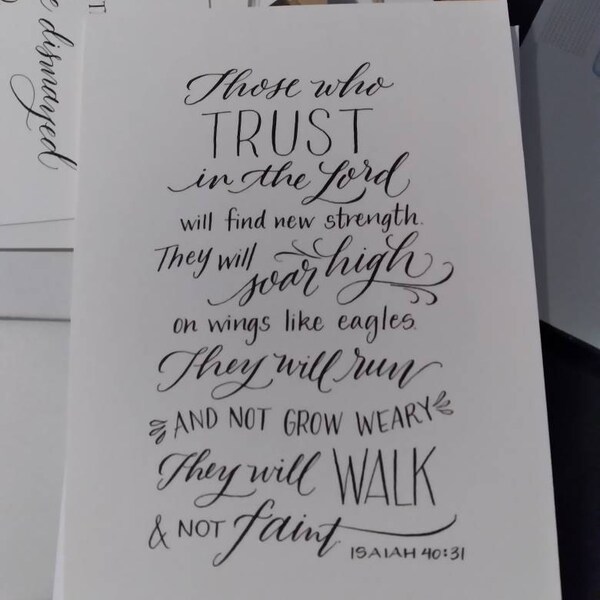 Those who
TRUST
in the Lord
will find new strength.
They will soar high
on wings like eagles.
They will run
AND NOT GROW WEARY
They will WALK
& NOT faint.
ISAIAH 40:31
dismayed